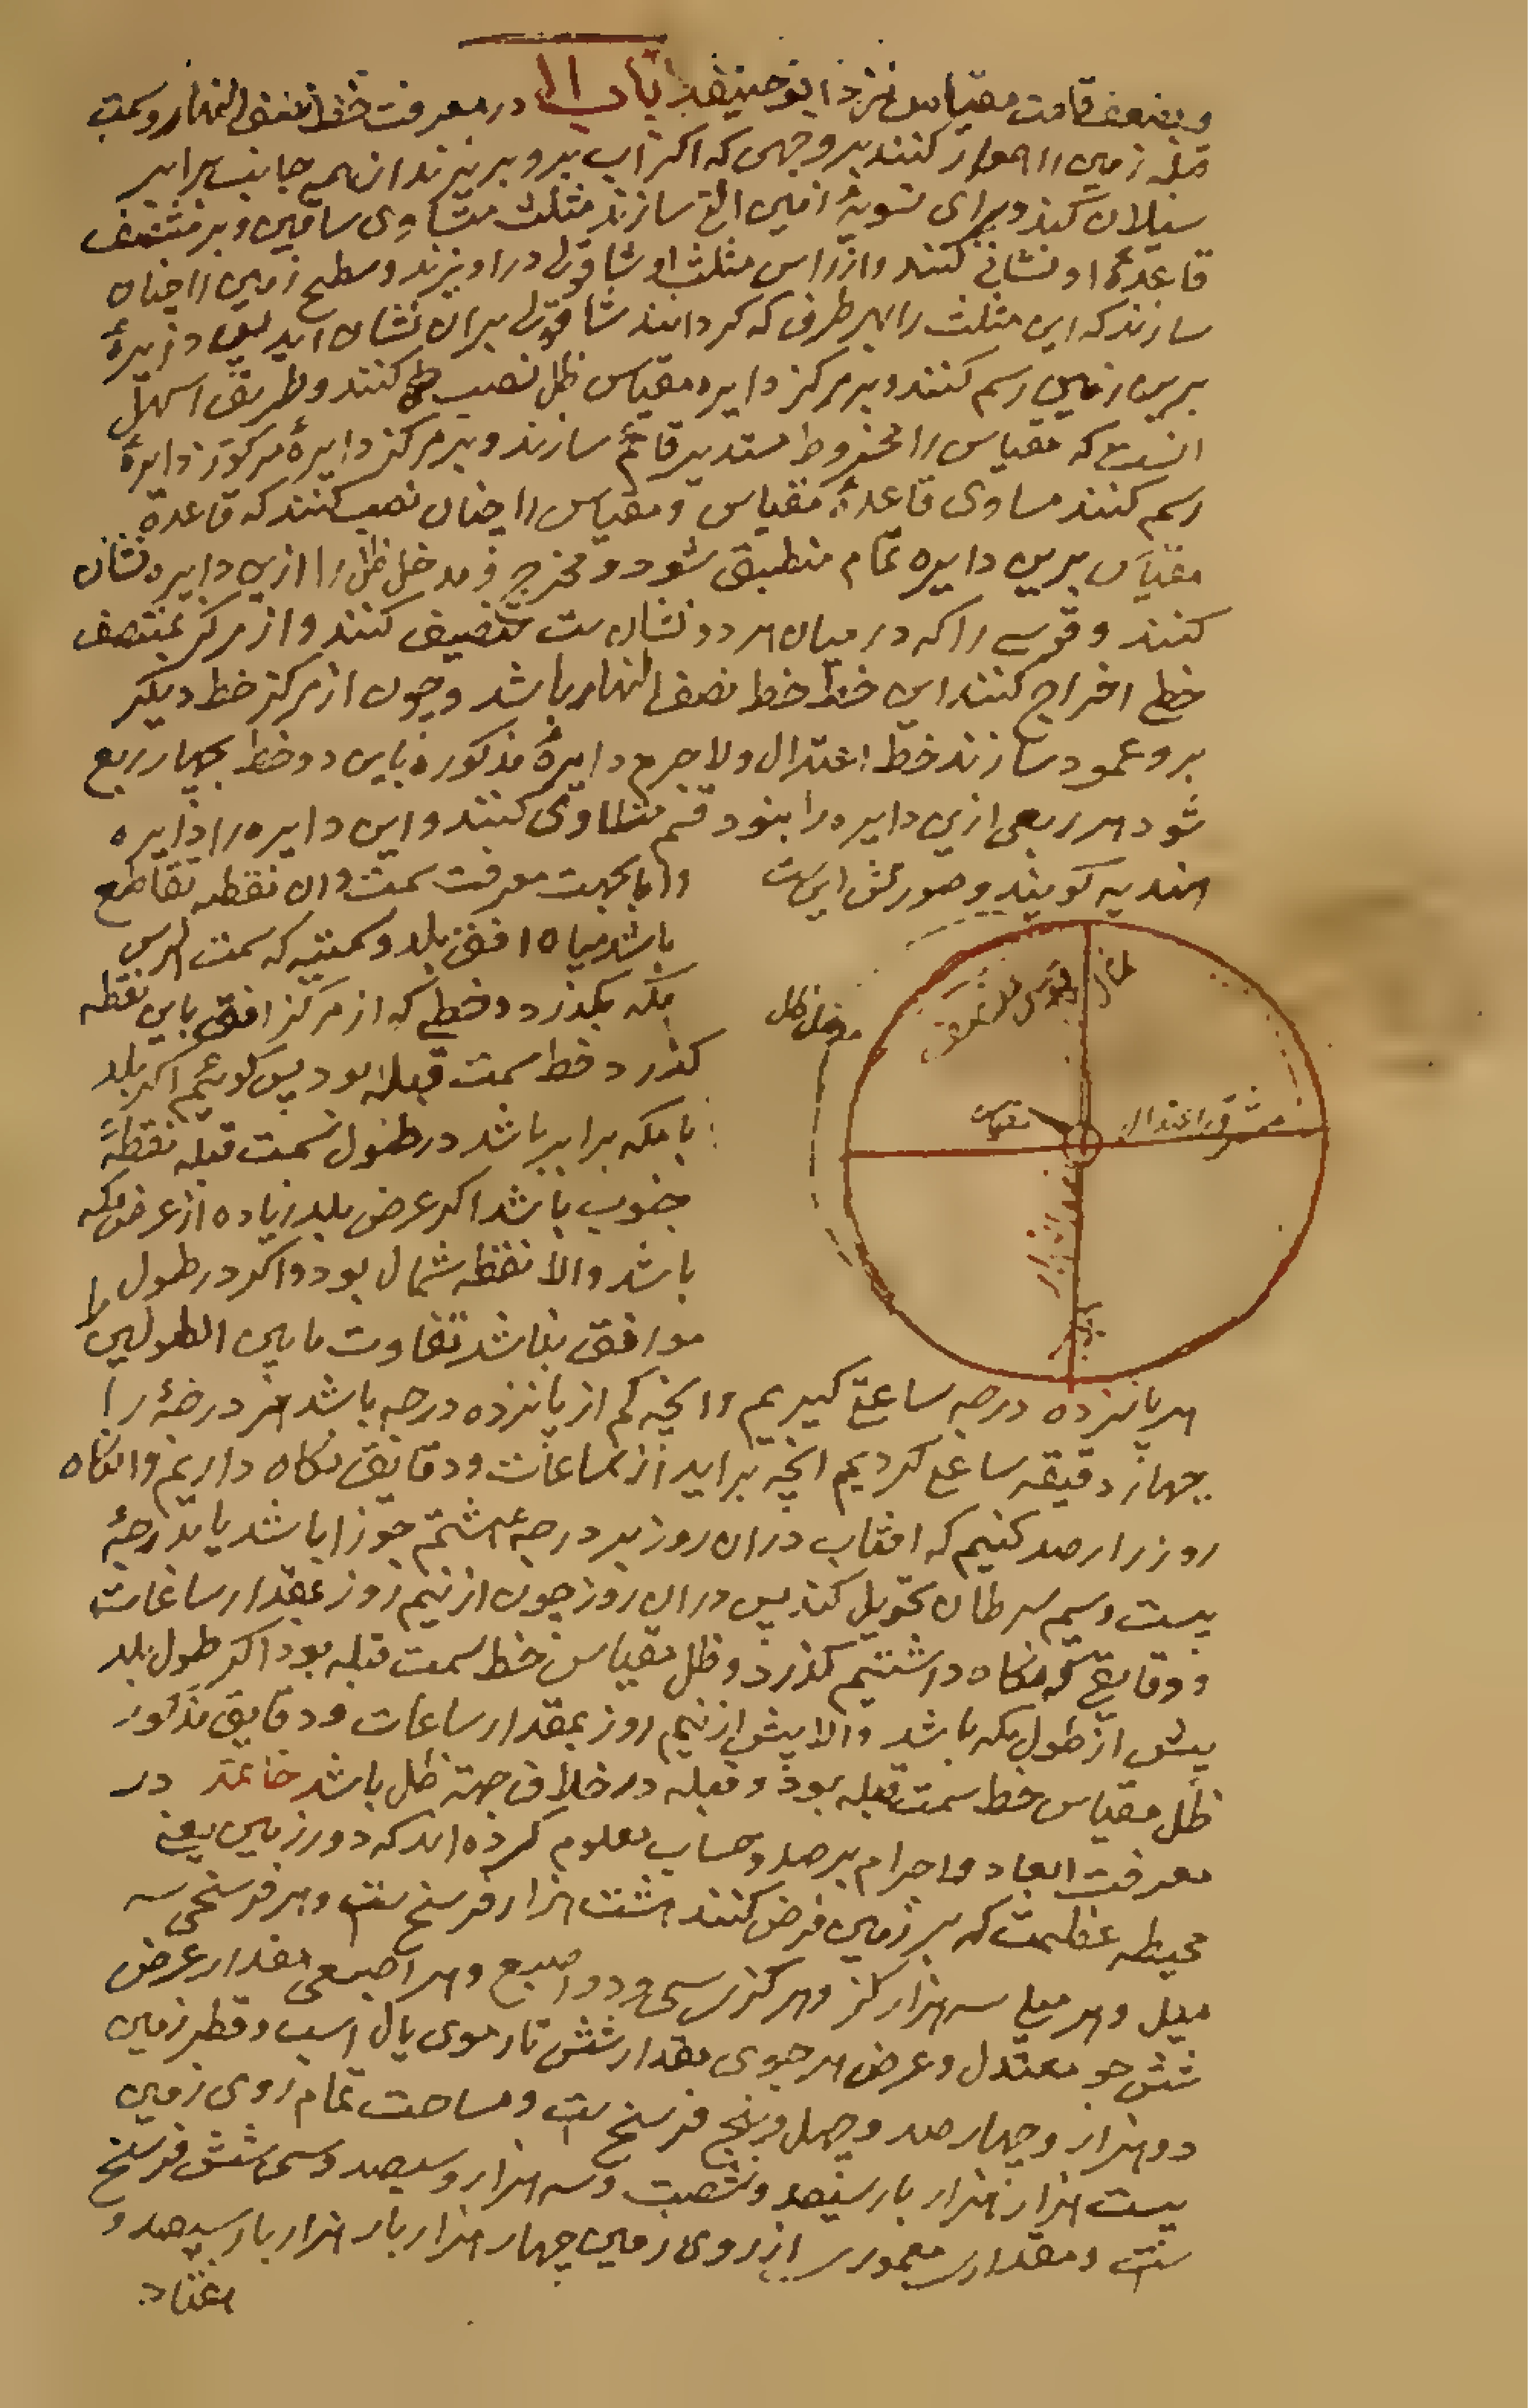 وبضعف قامت مقیاس نزد ابوحنیفه باب ۱۱ در معرفت خط نصف النهار و سمت
قبله زمین را هموار کنند بر وجهی که اکر آب برو بریزند از همه جانب برابر
سیلان کند و برای تسویهٔ زمین التی سازند مثلث متساوی ساقین و بر منتصف
قاعدهٔ او نشانی کنند و از راس مثلث او شاقولی در اویزند و سطح زمین را چنان
سازند که این مثلث را بهر طرف که کردانند شاقول بران نشان اید پس دایرهٔ
برین زمین رسم کنند و بر مرکز دایره مقیاس ظل نصب کنند و طریق اسهل
انست که مقیاس را مخروط مستدیر قائم سازند و بر مرکز دایرهٔ مذکور دایرهٔ
رسم کنند مساوی قاعدهٔ مقیاس و مقیاس را چنان نصب کنند که قاعدهٔ
مقیاس برین دایره تمام منطبق شود و مخرج و مدخل ظل را ازین دایره نشان
کنند و قوسی را که در میان هر دو نشان ست تنصیف کنند و از مرکز بمنتصف
خطی اخراج کنند این خط خط نصف النهار باشد و چون از مرکز خط دیکر
برو عمود سازند خط اعتدال و لاجرم دایرهٔ مذکوره باین دو خط بچهار ربع
شود هر ربعی ازین دایره را بنود قسم متساوی کنند و این دایره را دایره
هندیه کویند و صورتش این ست
واما بجهت معرفت سمت وان نقطه تقاطع
باشد میان افق بلد و سمتیه که بسمت الراس
مکه بکذرد و خطی که از مرکز افق باین نقطه
کذرد خط سمت قبله بود پس کوئیم اکر بلد
با مکه برابر باشد در طول سمت قبله نقطهٔ
جنوب باشد اکر عرض بلد زیاده از عرض مکه
باشد والا نقطه شمال بود و اکر در طول
موافق نباشد تفاوت ما بین الطولین را
مدخل ظل
مقیاس
مشرق اعتدال
هر پانزده درجه ساعتی کیریم وانچه کم از پانزده درجه باشد هر درجهٔ را
چهار دقیقه ساعتی کردیم انچه براید از ساعات و دقایق نکاه داریم وانکاه
روز را رصد کنیم که افتاب دران روز بدرجه هشتم جوزا باشد یا بدرجهٔ
بیست و سیم سرطان تحویل کند پس دران روز چون از نیم روز بمقدار ساعات
و دقایقی که نکاه داشتیم کذرد و ظل مقیاس خط سمت قبله بود اکر طول بلد
بیش از طول مکه باشد والا پیش از نیم روز بمقدار ساعات و دقایق مذکور
ظل مقیاس خط سمت قبله بود و قبله در خلاف جهة ظل باشد خاتمه در
معرفت ابعاد و اجرام برصد و حساب معلوم کرده اند که دور زمین یعنی
محیطه عظیمت که بر زمین فرض کنند هشت هزار فرسخ ست و هر فرسخی سه
میل و هر میلی سه هزار کز و هر کزی سی و دو اصبع و هر اصبعی مقدار عرض
شش جو معتدل و عرض هر جوی مقدار شش تار موی یال اسب و قطر زمین
دو هزار و چهارصد و چهل و پنج فرسخ ست و مساحت تمام روی زمین
بیست هزار هزار بار سیصد و شصت و سه هزار و سیصد و سی شش فرسخ
ست و مقدار معموره از روی زمین چهار هزار بار هزار بار سیصد و
هفتاد